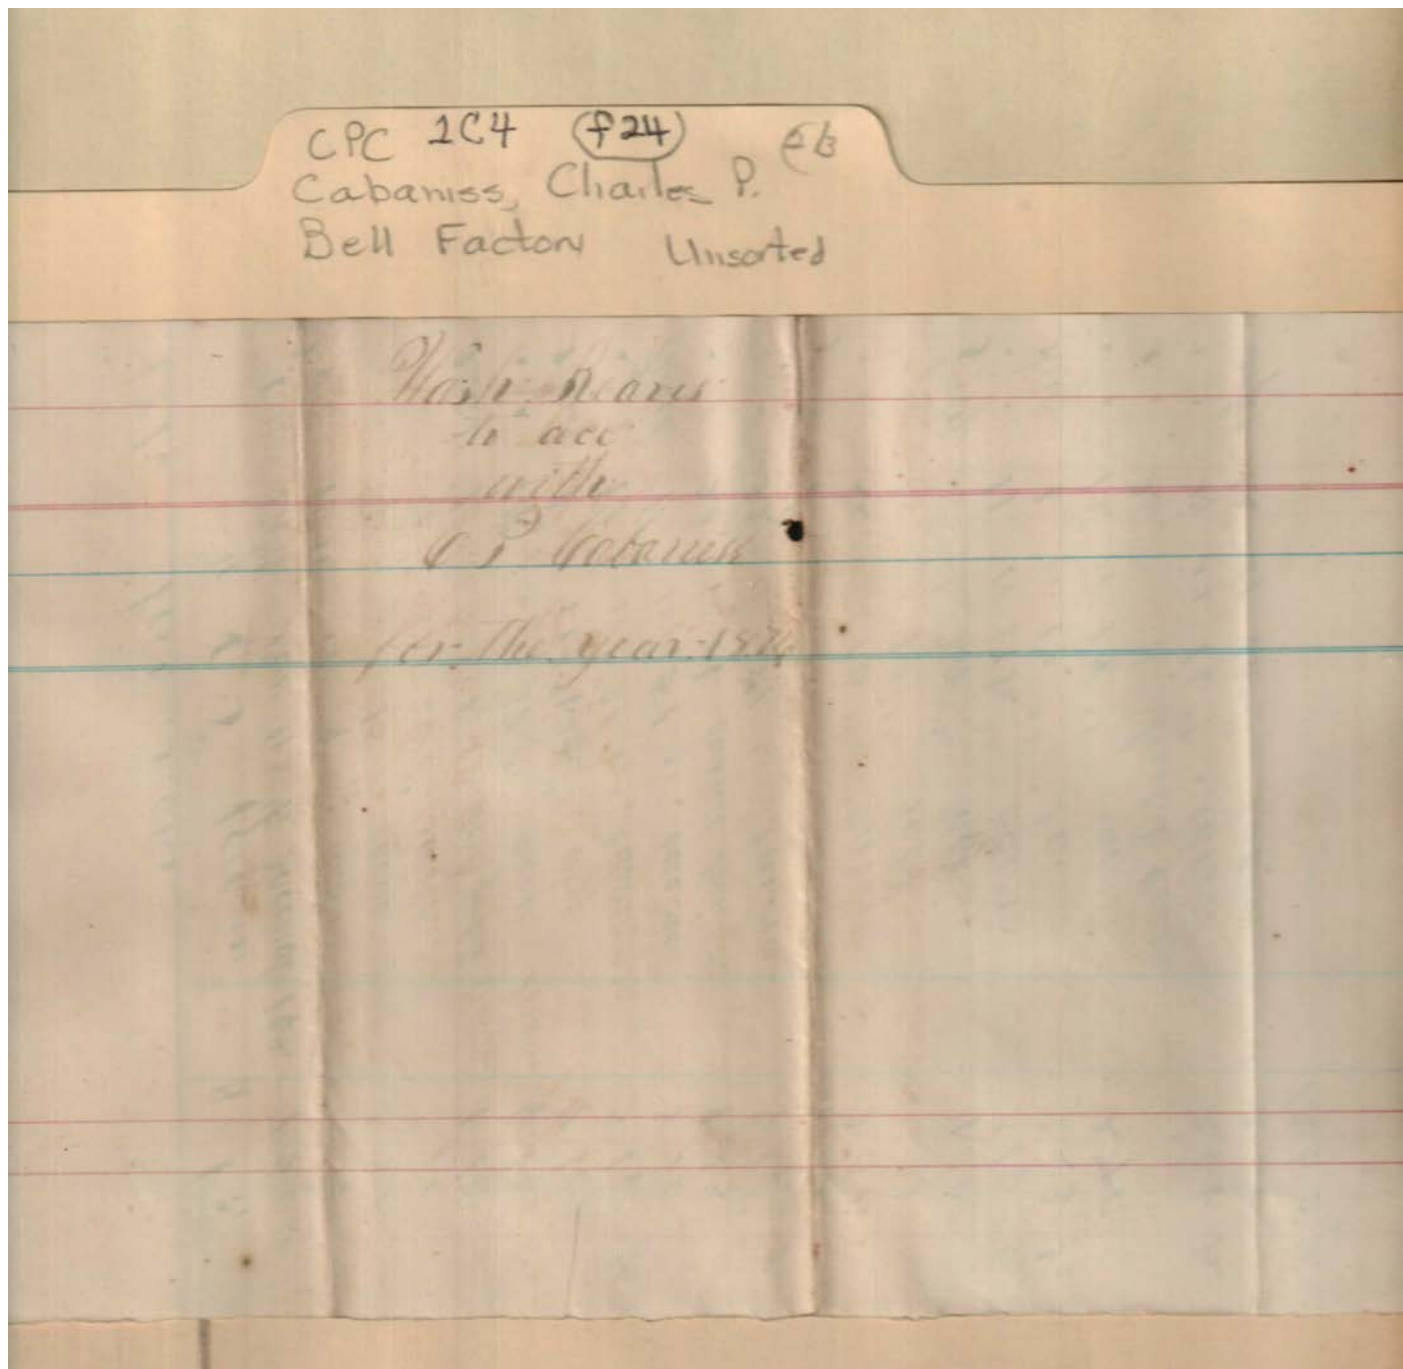 CPC 1C4 f24
Cabaniss, Charles P.
Bell Factory Unsorted
Wash
to acc
with
C P Cabaniss
for the year 1876